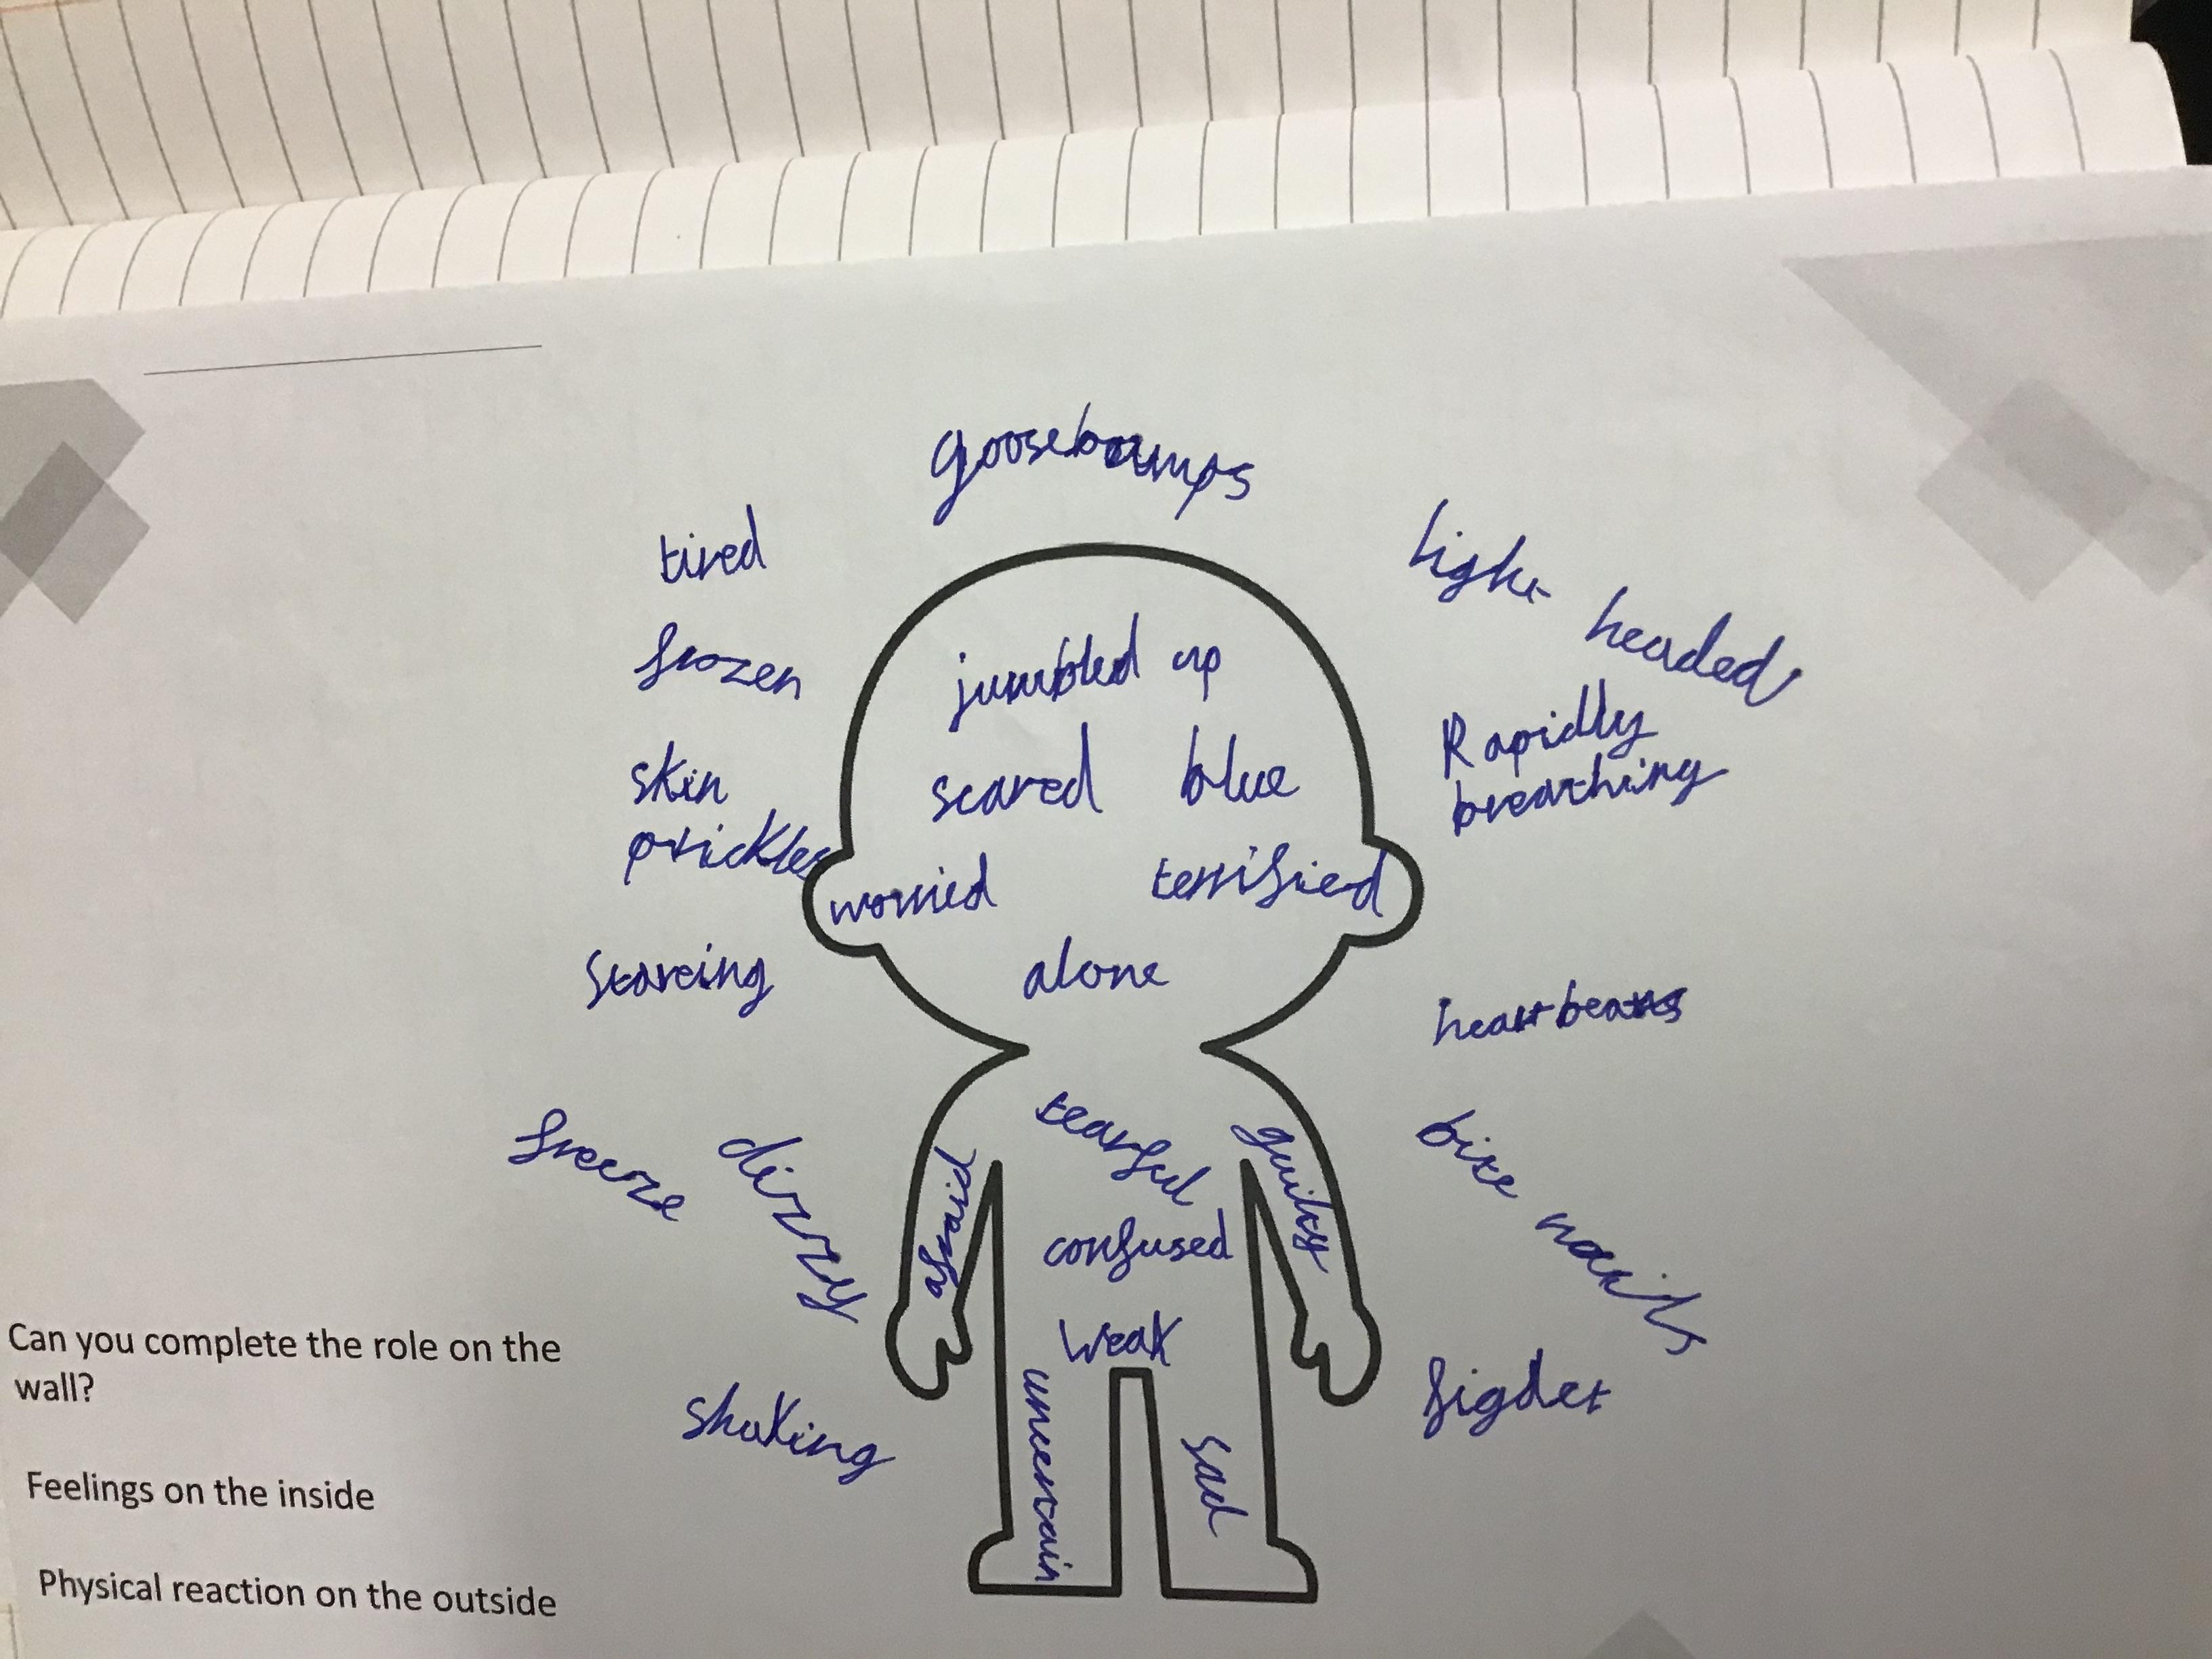 goosebumps
tired
light headed
frozen
jumbled up
Rapidly
breathing
skin
prickles
scared blue
worried terrified
stareing
alone
heartbeats
freeze
dizzy
tearful
guilty
afraid
bite nails
confused
weak
figdet
shaking
uncertain
sad
Can you complete the role on the
wall?
Feelings on the inside
Physical reaction on the outside